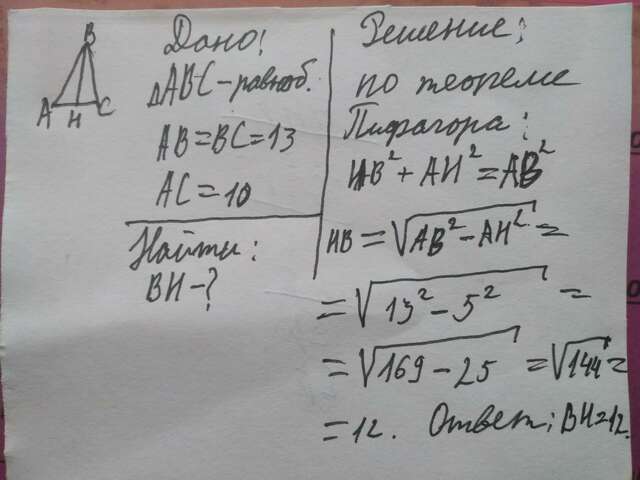 B
A H C
Дано:
△ABC-равноб.
AB=BC=13
AC=10
Найти:
BH-?
Решение:
по теореме
Пифагора:
HB²+AH²=AB²
HB=√AB²-AH²=
=√13²-5²=
=√169-25=√144=
=12. Ответ: BH=12.